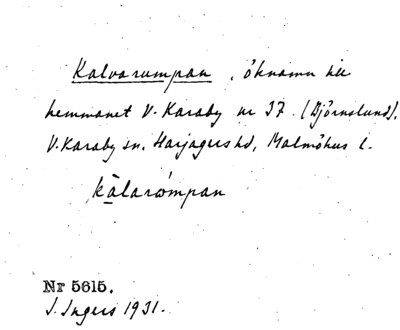 Kalvarumpan, öknamn till
hemmanet V. Karaby nr 37. (Björnslund).
V. Karaby sn. Harjagers hd, Malmöhus l.
kålarømpan
Nr 5615.
I. Ingers 1931.